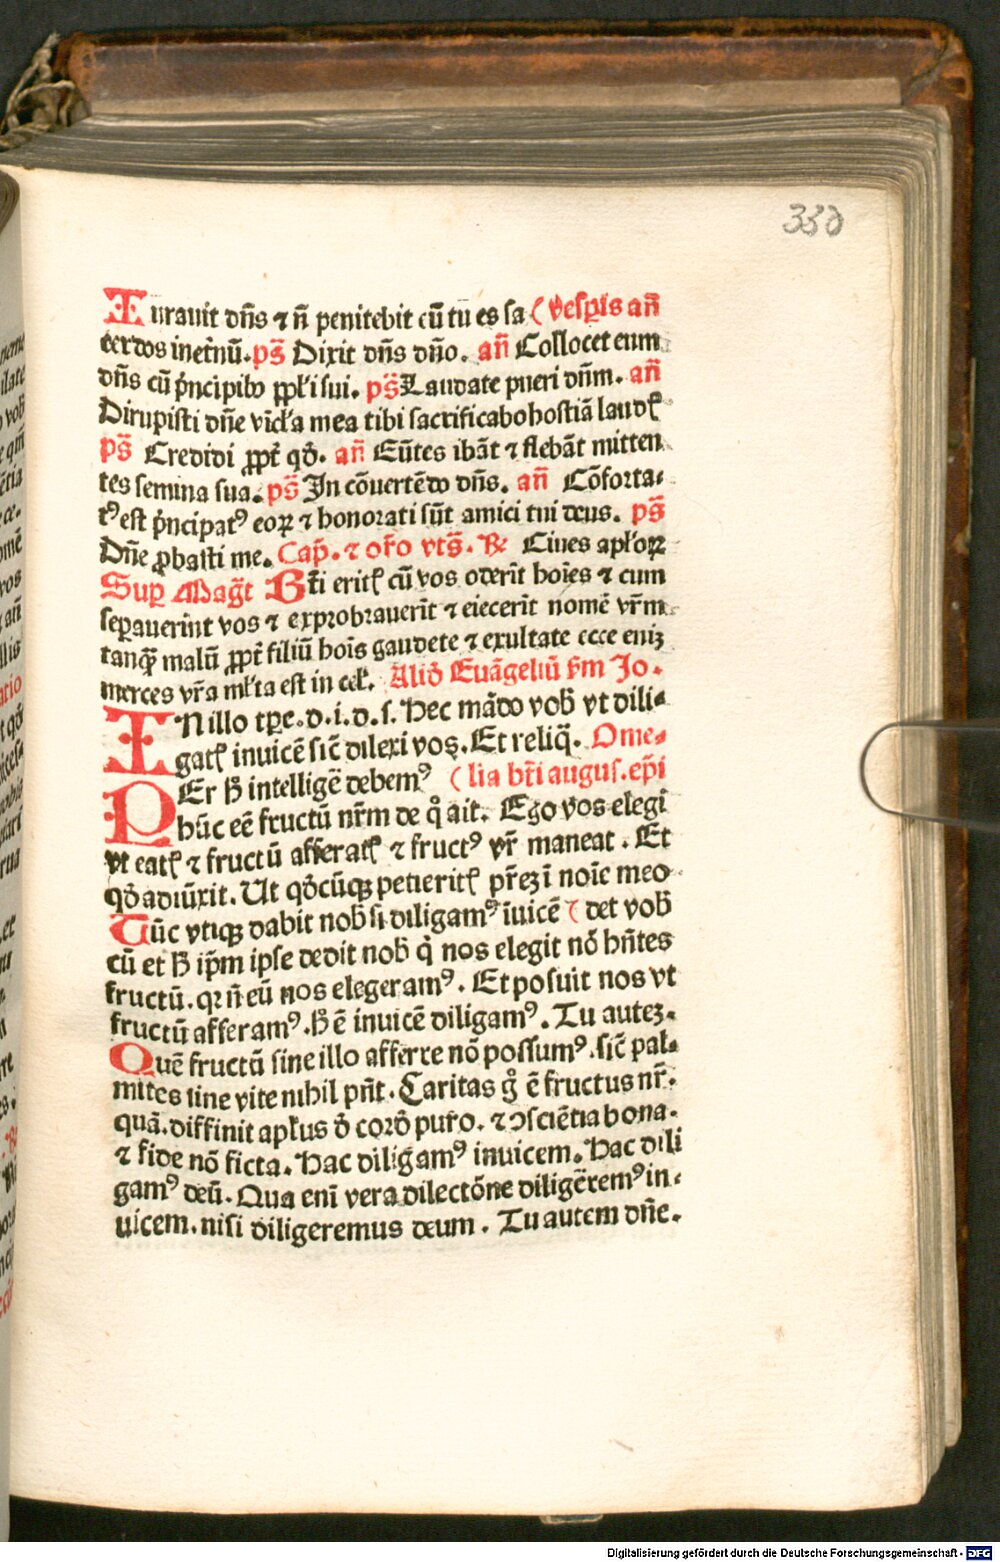 330
Iurauit dn̄s ⁊ n̄ penitebit cū tu es sa ( Vesp̄is an̄
cerdos inet̄nū. ps̄ Dixit dn̄s dn̄o. an̄ Collocet eum
dn̄s cū pͥncipibꝰ pp̄li sui. ps̄ Laudate pueri dn̄m. an̄
Dirupisti dn̄e vīcl̄a mea tibi sacrificabo hostiā laudꝭ
ps̄ Credidi ꝓpt̄ qđ. an̄ Eūtes ibāt ⁊ flebāt mitten
tes semina sua. ps̄ In cōuertēdo dn̄s. an̄ Cōforta⸗
tꝰ est pͥncipatꝰ eoꝝ ⁊ honorati sūt amici tui deus. ps̄
Dn̄e ꝓbasti me. Cap̄. ⁊ or̄o vts̄. ℟ Ciues apl̄oꝝ
Suꝑ Maḡt Bt̄i eritꝭ cū vos oderīt hoīes ⁊ cum
seꝑauerint vos ⁊ exprobrauerīt ⁊ eiecerīt nomē vr̄m
tanqꝫ malū ꝓpt̄ filiū hoīs gaudete ⁊ exultate ecce eniꝫ
merces vr̄a ml̄ta est in cel̄. Aliđ Euāgeliū s̄m Jo.
IN illo tꝑe. d. i. d. s. Hec mādo vob̄ vt dili⸗
gatꝭ inuicē sic̄ dilexi vos. Et reliq̄. Ome⸗
PEr h̄ intelligē debemꝰ ( lia bt̄i augus. ep̄i
hūc eē fructū nr̄m de qͥ ait. Ego vos elegi
vt eatꝭ ⁊ fructū afferatꝭ ⁊ fructꝰ vr̄ maneat. Et
qđ adiūxit. Ut qđcūqꝫ petieritꝭ pr̄eꝫ ī noīe meo
Tūc vtiqꝫ dabit nob̄ si diligamꝰ īuicē ( det vob̄
cū et h̄ ip̄m ipse dedit nob̄ qͥ nos elegit nō hn̄tes
fructū. qꝛ n̄ eū nos elegeramꝰ. Et posuit nos vt
fructū afferamꝰ. h̄ ē inuicē diligamꝰ. Tu auteꝫ.
Quē fructū sine illo afferre nō possumꝰ. sic̄ pal⸗
mites sine vite nihil pn̄t. Caritas gͦ ē fructus nr̄.
quā. diffinit apl̄us đ corđ puro. ⁊ ꝯsciētia bona.
⁊ fide nō ficta. Hac diligamꝰ inuicem. Hac dili
gamꝰ deū. Qua enī vera dilectōne diligēremꝰ in⸗
uicem. nisi diligeremus deum. Tu autem dn̄e.
Digitalisierung gefördert durch die Deutsche Forschungsgemeinschaft - DFG